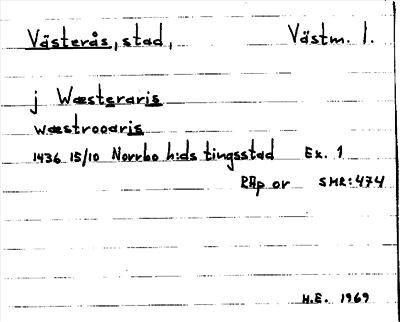 Västerås, stad, Västm. l.
j Wæsteraris
wæstrooaris
1436 15/10 Norrbo h:ds tingsstad Ex. 1
RAp or SMR:474
H.E. 1969